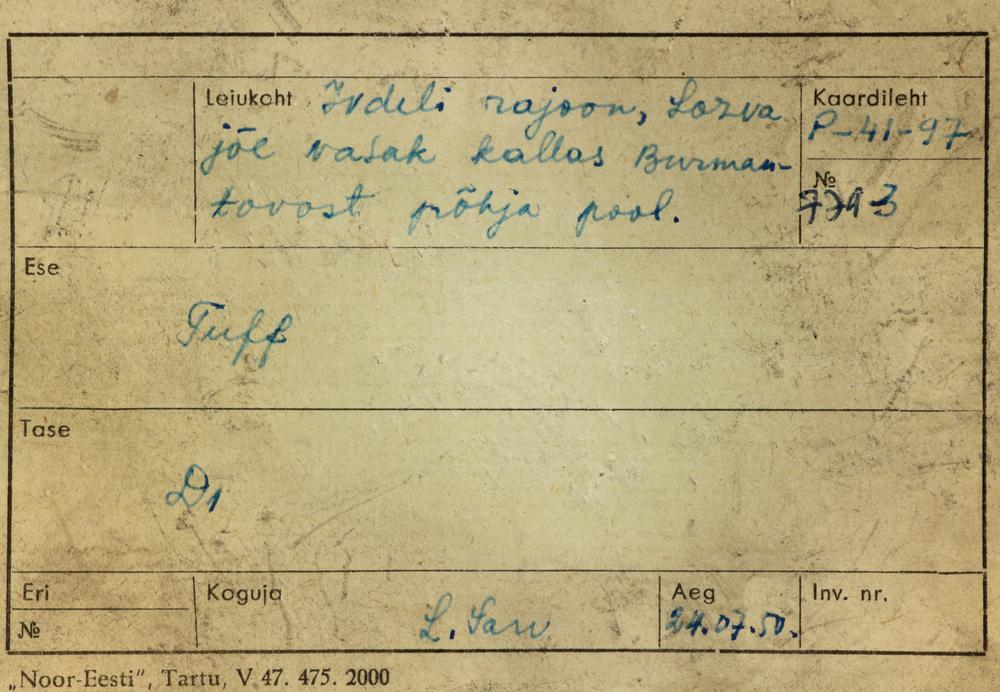 Leiukoht Ivdeli rajoon, Lozva
jõe vasak kallas Burman-
tovost põhja pool.
Kaardileht
P-41-97
№
Ese
Tuff
Tase
D1
Eri
№
Koguja
L. Sarv
Aeg
24.07.50.
Inv. nr.
„Noor-Eesti“, Tartu, V 47. 475. 2000